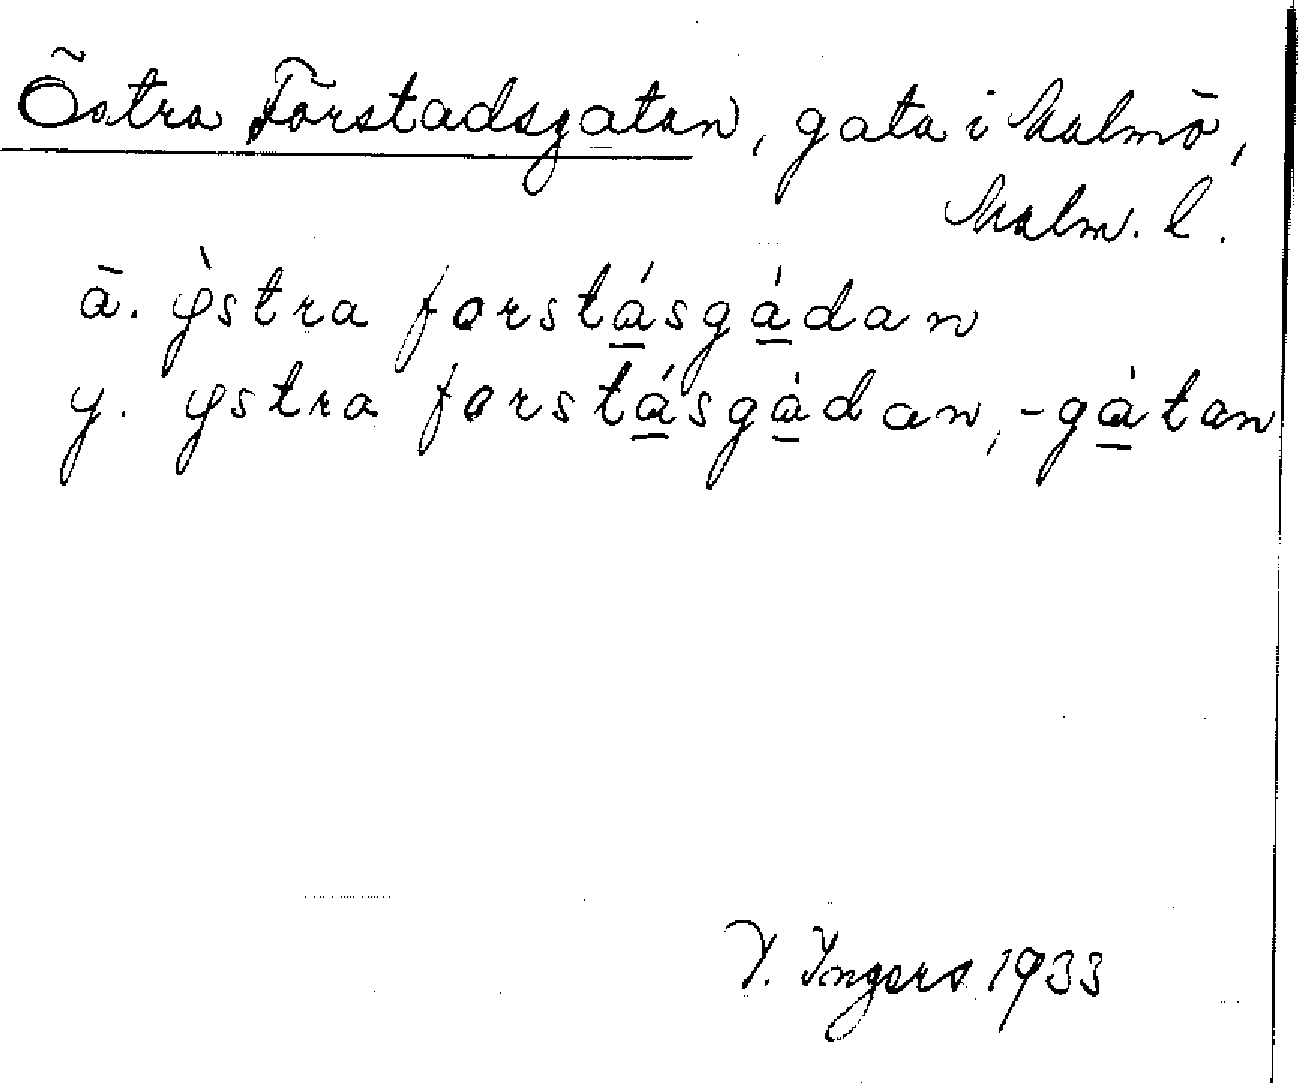 Östra Förstadsgatan, gata i Malmö,
Malm. l.
ä. ỳstra forstásgádan
y. ystra forstásgàdan, -gàtan
I. Ingers 1933